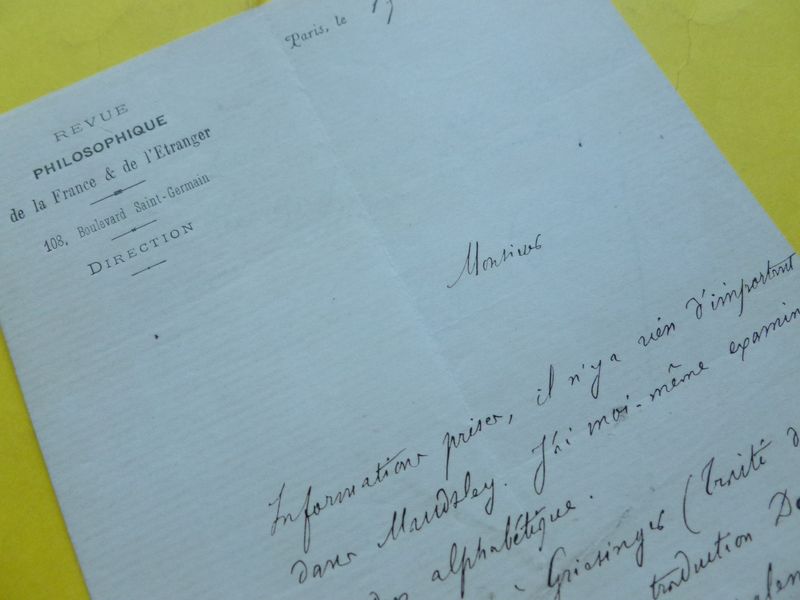 REVUE
PHILOSOPHIQUE
de la France & de l'Etranger
108, Boulevard Saint-Germain
DIRECTION
Paris, le
Monsieur
Informations prises, il n'y a rien d'important
dans Maudsley. J'ai moi-même examin
alphabétique.
à Griesinger (Traité d
traduction Do